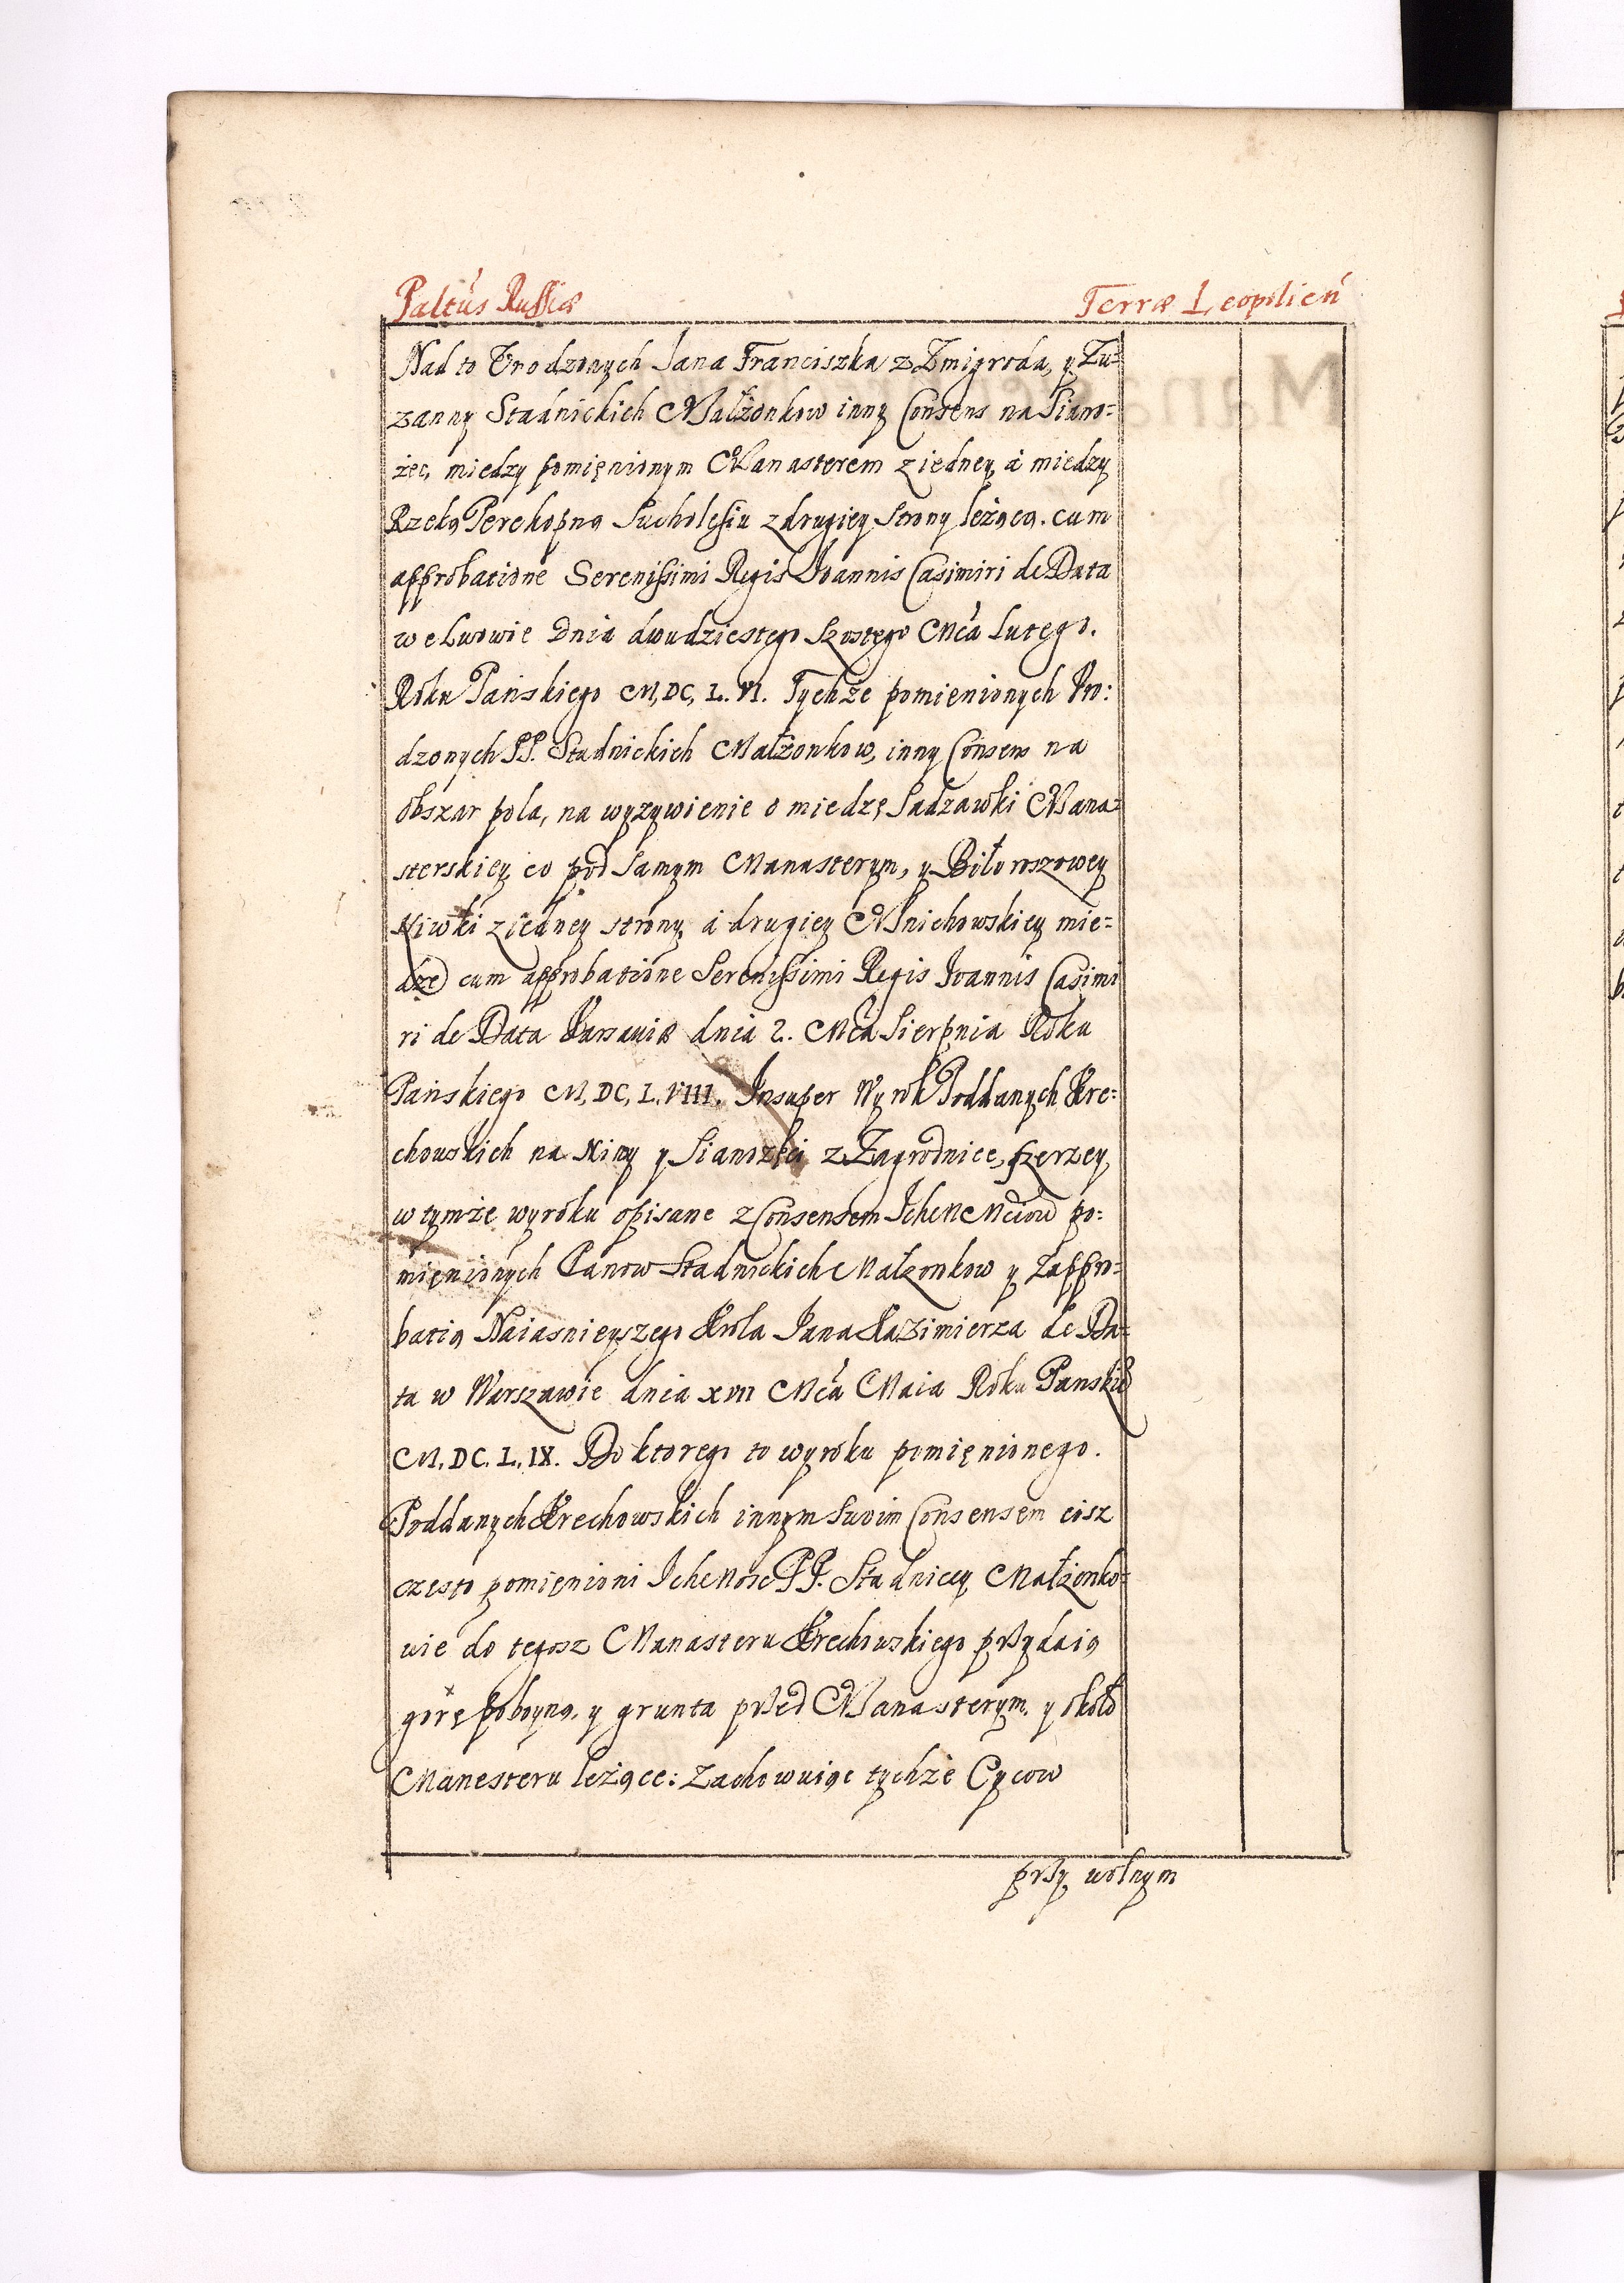 Paltús Russiæ
Terræ Leopolień
Nad to Urodzonych Jana Franciszka z Zmigroda, y Zu=
zanny Stadnickich Małżonkow inny Consens na Siano=
żęc, miedzy pomięnionym Manasterem z iedney, á miedzy
Rzeką Perekopną Sucholęsiu z drugiey strony leżącą. cum
approbatione Serenissimi Regis Joannis Casimiri de Data
we Lwowie Dnia dwudziestego szostego Mcá Lutego.
Roku Pańskiego M, DC, L. VI. Tychże pomienionych Vro:
dzonych PP. Stadnickich Małżonkow, inny Consens na
obszar pola, na wyzywienie o miedzę Sadzawki Mana=
sterskiey co pod samym Manasterym, y Biłoroszowey
Niwki z iedney strony á drugiey Mnichowskiey mie=
dze cum approbatione Serenissimi Regis Joannis Casimi
ri de Data Varsaviæ dnia 2. Mcá Sierpnia Roku
Pańskiego M, DC, L. VIII. Insuper Wyrok Poddanych Kre:
chowskich na Niwy y Sianozęci z Zagrodnice, szerzey,
w tymże wyroku opisane z Consensem Ich Mciow po:
mięnionych Panow Stadnickich Małzonkow y z appro:
batią Naiasnieyszego Krola Jana Kazimierza de Da=
ta w Warszawie dnia XVII Mcá Maia Roku Panskie
M. DC. L. IX. Do ktorego to wyroku pomięnionego.
Poddanych Krechowskich innym swoim Consensem cisz
często pomięnioni Ich Mośc PP. Stadniccy Małżonko=
wie do tegosz Manasteru Krechowskiego przydaią
górę poboyną. y grunta przed Manasterym. y około
Manesteru leżące: Zachowuiąc tychże Oycow
przy wolnym